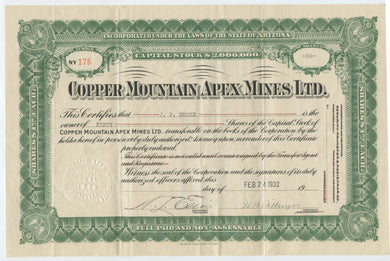 INCORPORATED UNDER THE LAWS OF THE STATE OF ARIZONA
CAPITAL STOCK $2,000,000.
NY 175
-50-
COPPER MOUNTAIN APEX MINES LTD.
This Certifies that J. D. MOORE is the
owner of FIFTY Shares of the Capital Stock of
COPPER MOUNTAIN APEX MINES LTD. transferable on the books of the Corporation by the
holder hereof in person or by duly authorized Attorney upon surrender of this Certificate
properly endorsed.
This Certificate is not valid until countersigned by the Transfer Agent
and Registrar.
Witness the seal of the Corporation and the signatures of its duly
authorized officers affixed this
day of FEB 24 1932 19
SHARES $1 EACH
SHARES $1 EACH
FULL PAID AND NON-ASSESSABLE